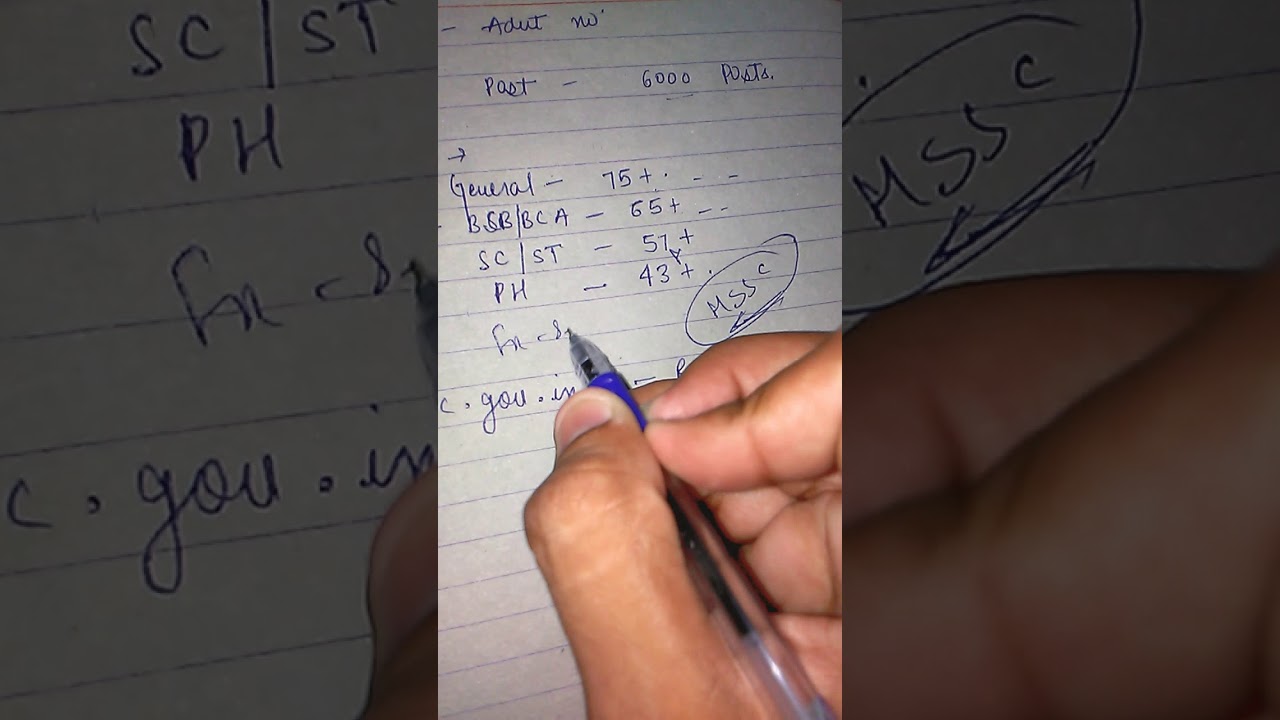 - Advt no.
Post - 6000 Posts.
→
General - 75+ . - -
BSB/BCA - 65+ - - -
SC/ST - 57+
PH - 43+ .
MSSC
Ex - S
c.gov.in -